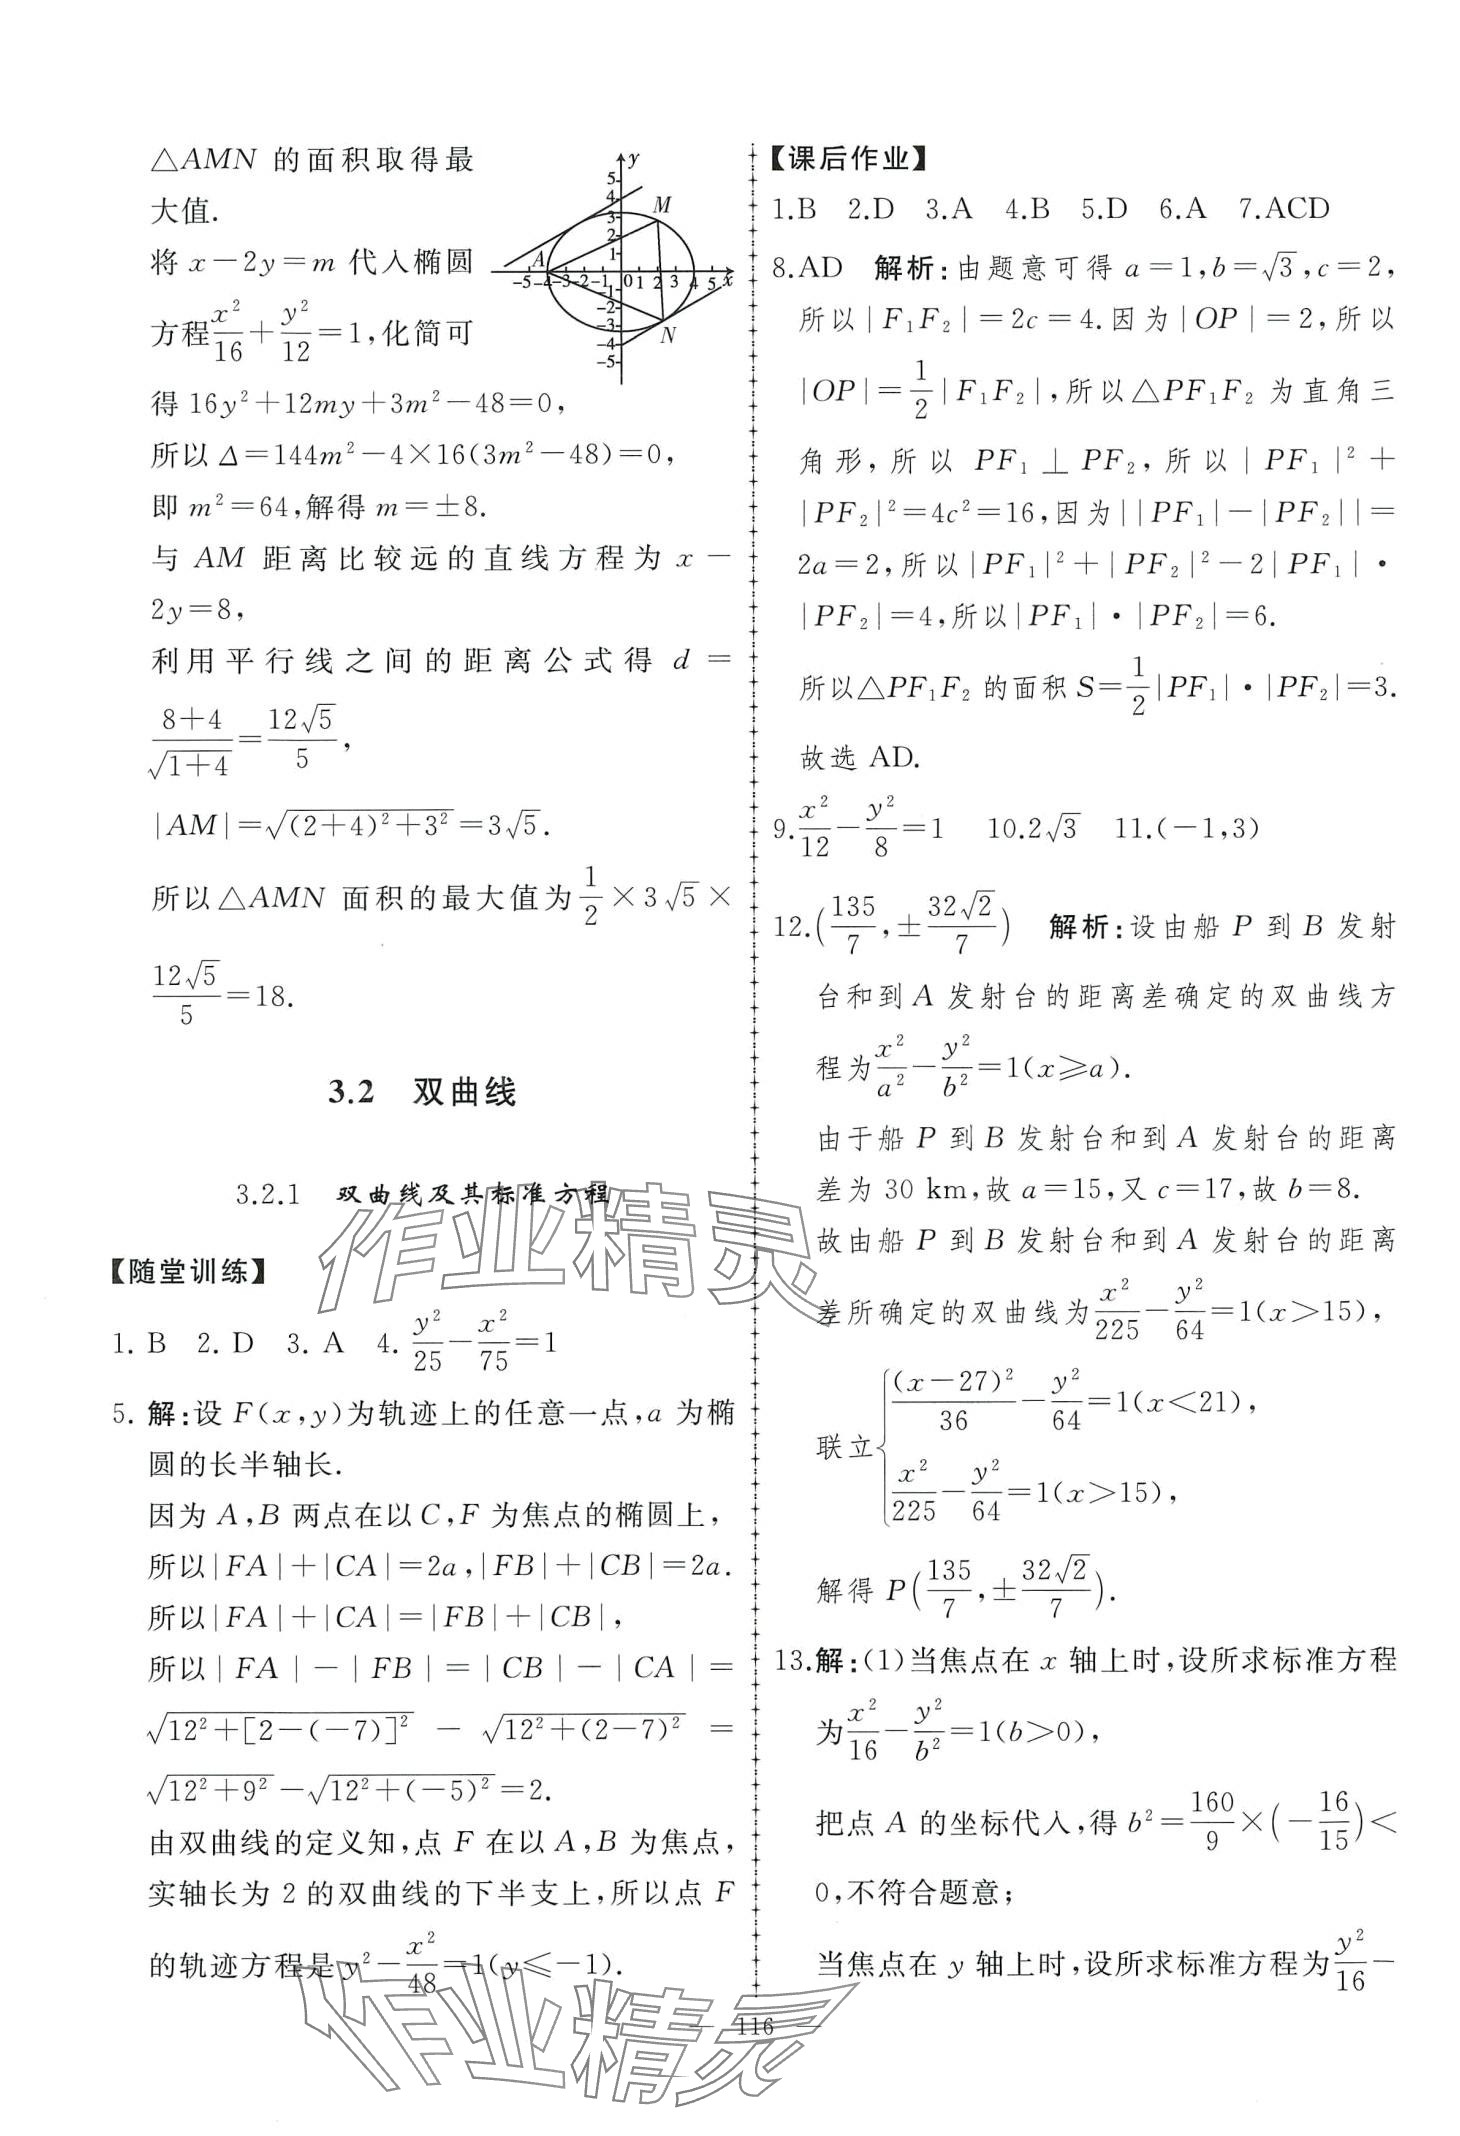 △AMN 的面积取得最
大值.
将 x－2y＝m 代入椭圆
方程x²/16＋y²/12＝1,化简可
得 16y²＋12my＋3m²－48＝0,
所以 Δ＝144m²－4×16(3m²－48)＝0,
即 m²＝64,解得 m＝±8.
与 AM 距离比较远的直线方程为 x－
2y＝8,
利用平行线之间的距离公式得 d＝
(8＋4)/√(1＋4)＝12√5/5,
|AM|＝√((2＋4)²＋3²)＝3√5.
所以△AMN 面积的最大值为1/2×3√5×
12√5/5＝18.
y
5
4
3
2
1
M
A
-5-4-3-2-1 0 1 2 3 4 5 x
-1
-2
-3
-4
-5
N
3.2 双曲线
3.2.1 双曲线及其标准方程
【随堂训练】
1. B 2. D 3. A 4. y²/25－x²/75＝1
5. 解:设 F(x,y)为轨迹上的任意一点,a 为椭
圆的长半轴长.
因为 A,B 两点在以 C,F 为焦点的椭圆上,
所以|FA|＋|CA|＝2a,|FB|＋|CB|＝2a.
所以|FA|＋|CA|＝|FB|＋|CB|,
所以|FA|－|FB|＝|CB|－|CA|＝
√(12²＋[2－(－7)]²) － √(12²＋(2－7)²) ＝
√(12²＋9²)－√(12²＋(－5)²)＝2.
由双曲线的定义知,点 F 在以 A,B 为焦点,
实轴长为 2 的双曲线的下半支上,所以点 F
的轨迹方程是 y²－x²/48＝1(y≤－1).
【课后作业】
1.B 2.D 3.A 4.B 5.D 6.A 7.ACD
8.AD 解析:由题意可得 a＝1,b＝√3,c＝2,
所以|F₁F₂|＝2c＝4.因为|OP|＝2,所以
|OP|＝1/2|F₁F₂|,所以△PF₁F₂ 为直角三
角形,所以 PF₁⊥PF₂,所以|PF₁|²＋
|PF₂|²＝4c²＝16,因为||PF₁|－|PF₂||＝
2a＝2,所以|PF₁|²＋|PF₂|²－2|PF₁|·
|PF₂|＝4,所以|PF₁|·|PF₂|＝6.
所以△PF₁F₂ 的面积 S＝1/2|PF₁|·|PF₂|＝3.
故选 AD.
9.x²/12－y²/8＝1 10.2√3 11.(－1,3)
12.(135/7,±32√2/7) 解析:设由船 P 到 B 发射
台和到 A 发射台的距离差确定的双曲线方
程为x²/a²－y²/b²＝1(x≥a).
由于船 P 到 B 发射台和到 A 发射台的距离
差为 30 km,故 a＝15,又 c＝17,故 b＝8.
故由船 P 到 B 发射台和到 A 发射台的距离
差所确定的双曲线为x²/225－y²/64＝1(x＞15),
联立{(x－27)²/36－y²/64＝1(x＜21),
x²/225－y²/64＝1(x＞15),
解得 P(135/7,±32√2/7).
13.解:(1)当焦点在 x 轴上时,设所求标准方程
为x²/16－y²/b²＝1(b＞0),
把点 A 的坐标代入,得 b²＝160/9×(－16/15)＜
0,不符合题意;
当焦点在 y 轴上时,设所求标准方程为y²/16－
— 116 —
作业精灵
作业精灵